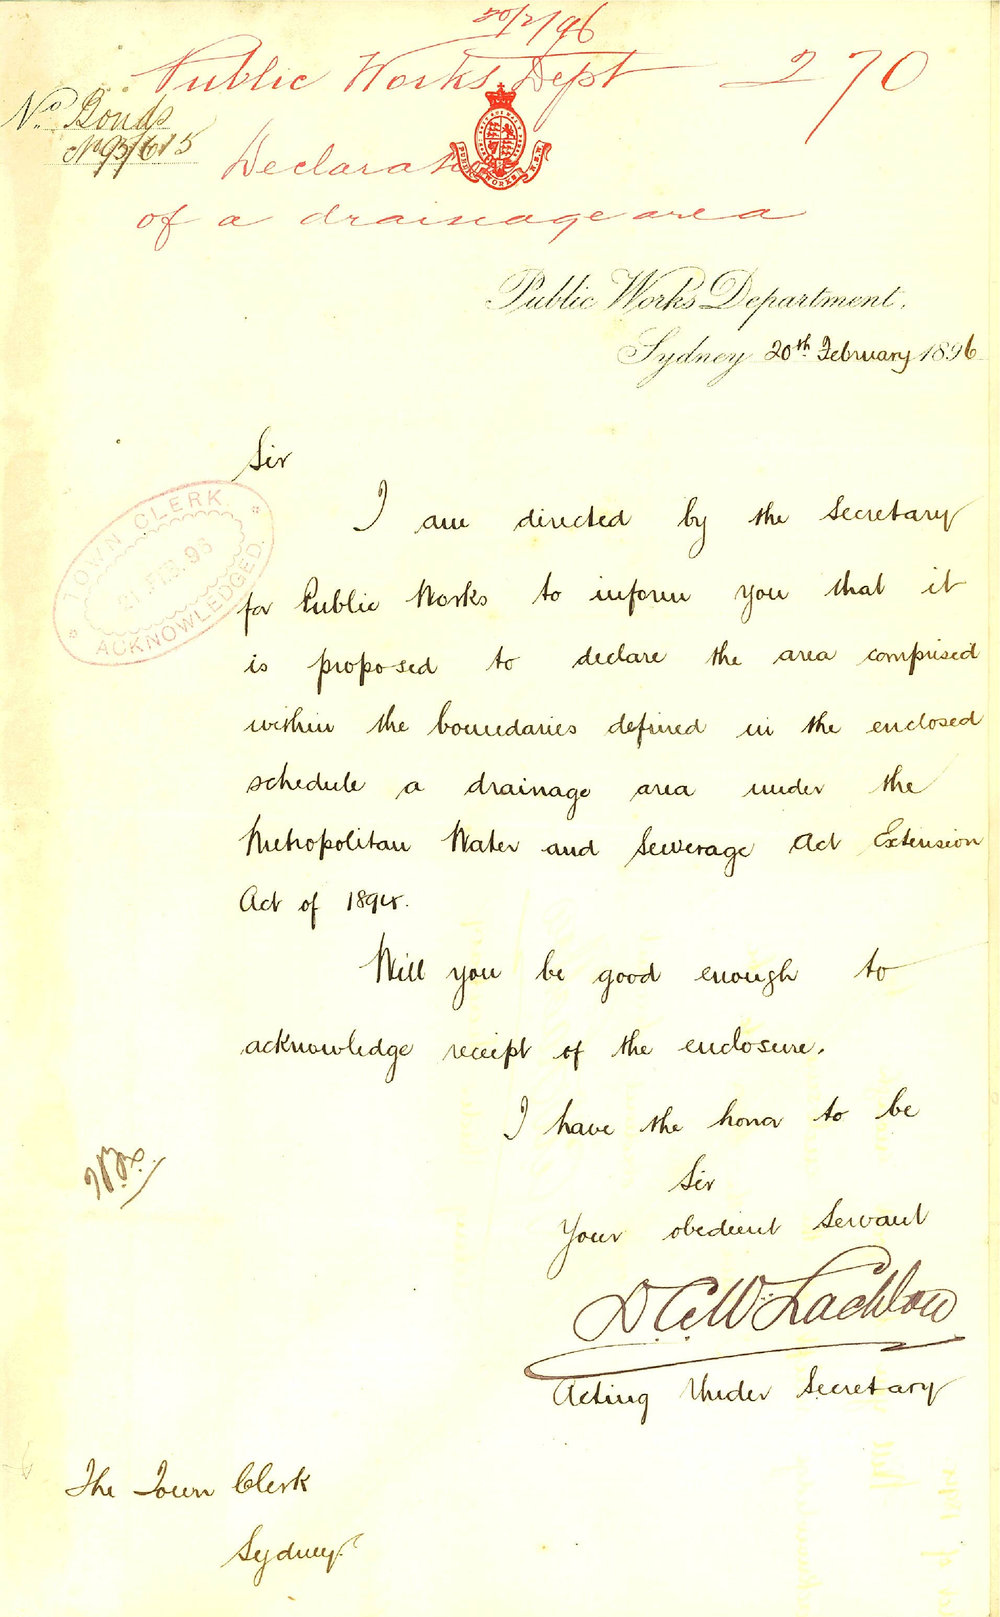 20/2/96
Public Works Dept 270
No. Bonds
Declarat
of a drainage area
PUBLIC WORKS N.S.W.
Public Works Department,
Sydney 20th February 1896
Sir
TOWN CLERK.
21 FEB. 96
ACKNOWLEDGED.
I am directed by the Secretary
for Public Works to inform you that it
is proposed to declare the area comprised
within the boundaries defined in the enclosed
schedule a drainage area under the
Metropolitan Water and Sewerage Act Extension
Act of 1894.
Will you be good enough to
acknowledge receipt of the enclosure.
I have the honor to be
Sir
Your obedient Servant
D. C. McLachlan
Acting Under Secretary
The Town Clerk
Sydney.